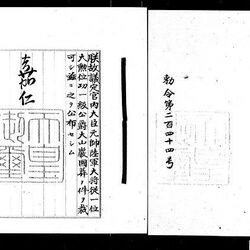 勅令第二百四十四号
朕故議定官内大臣元帥陸軍大将従一位
大勲位功一級公爵大山巌國葬ノ件ヲ裁
可シ茲ニ之ヲ公布セシム
嘉仁
天皇
御璽